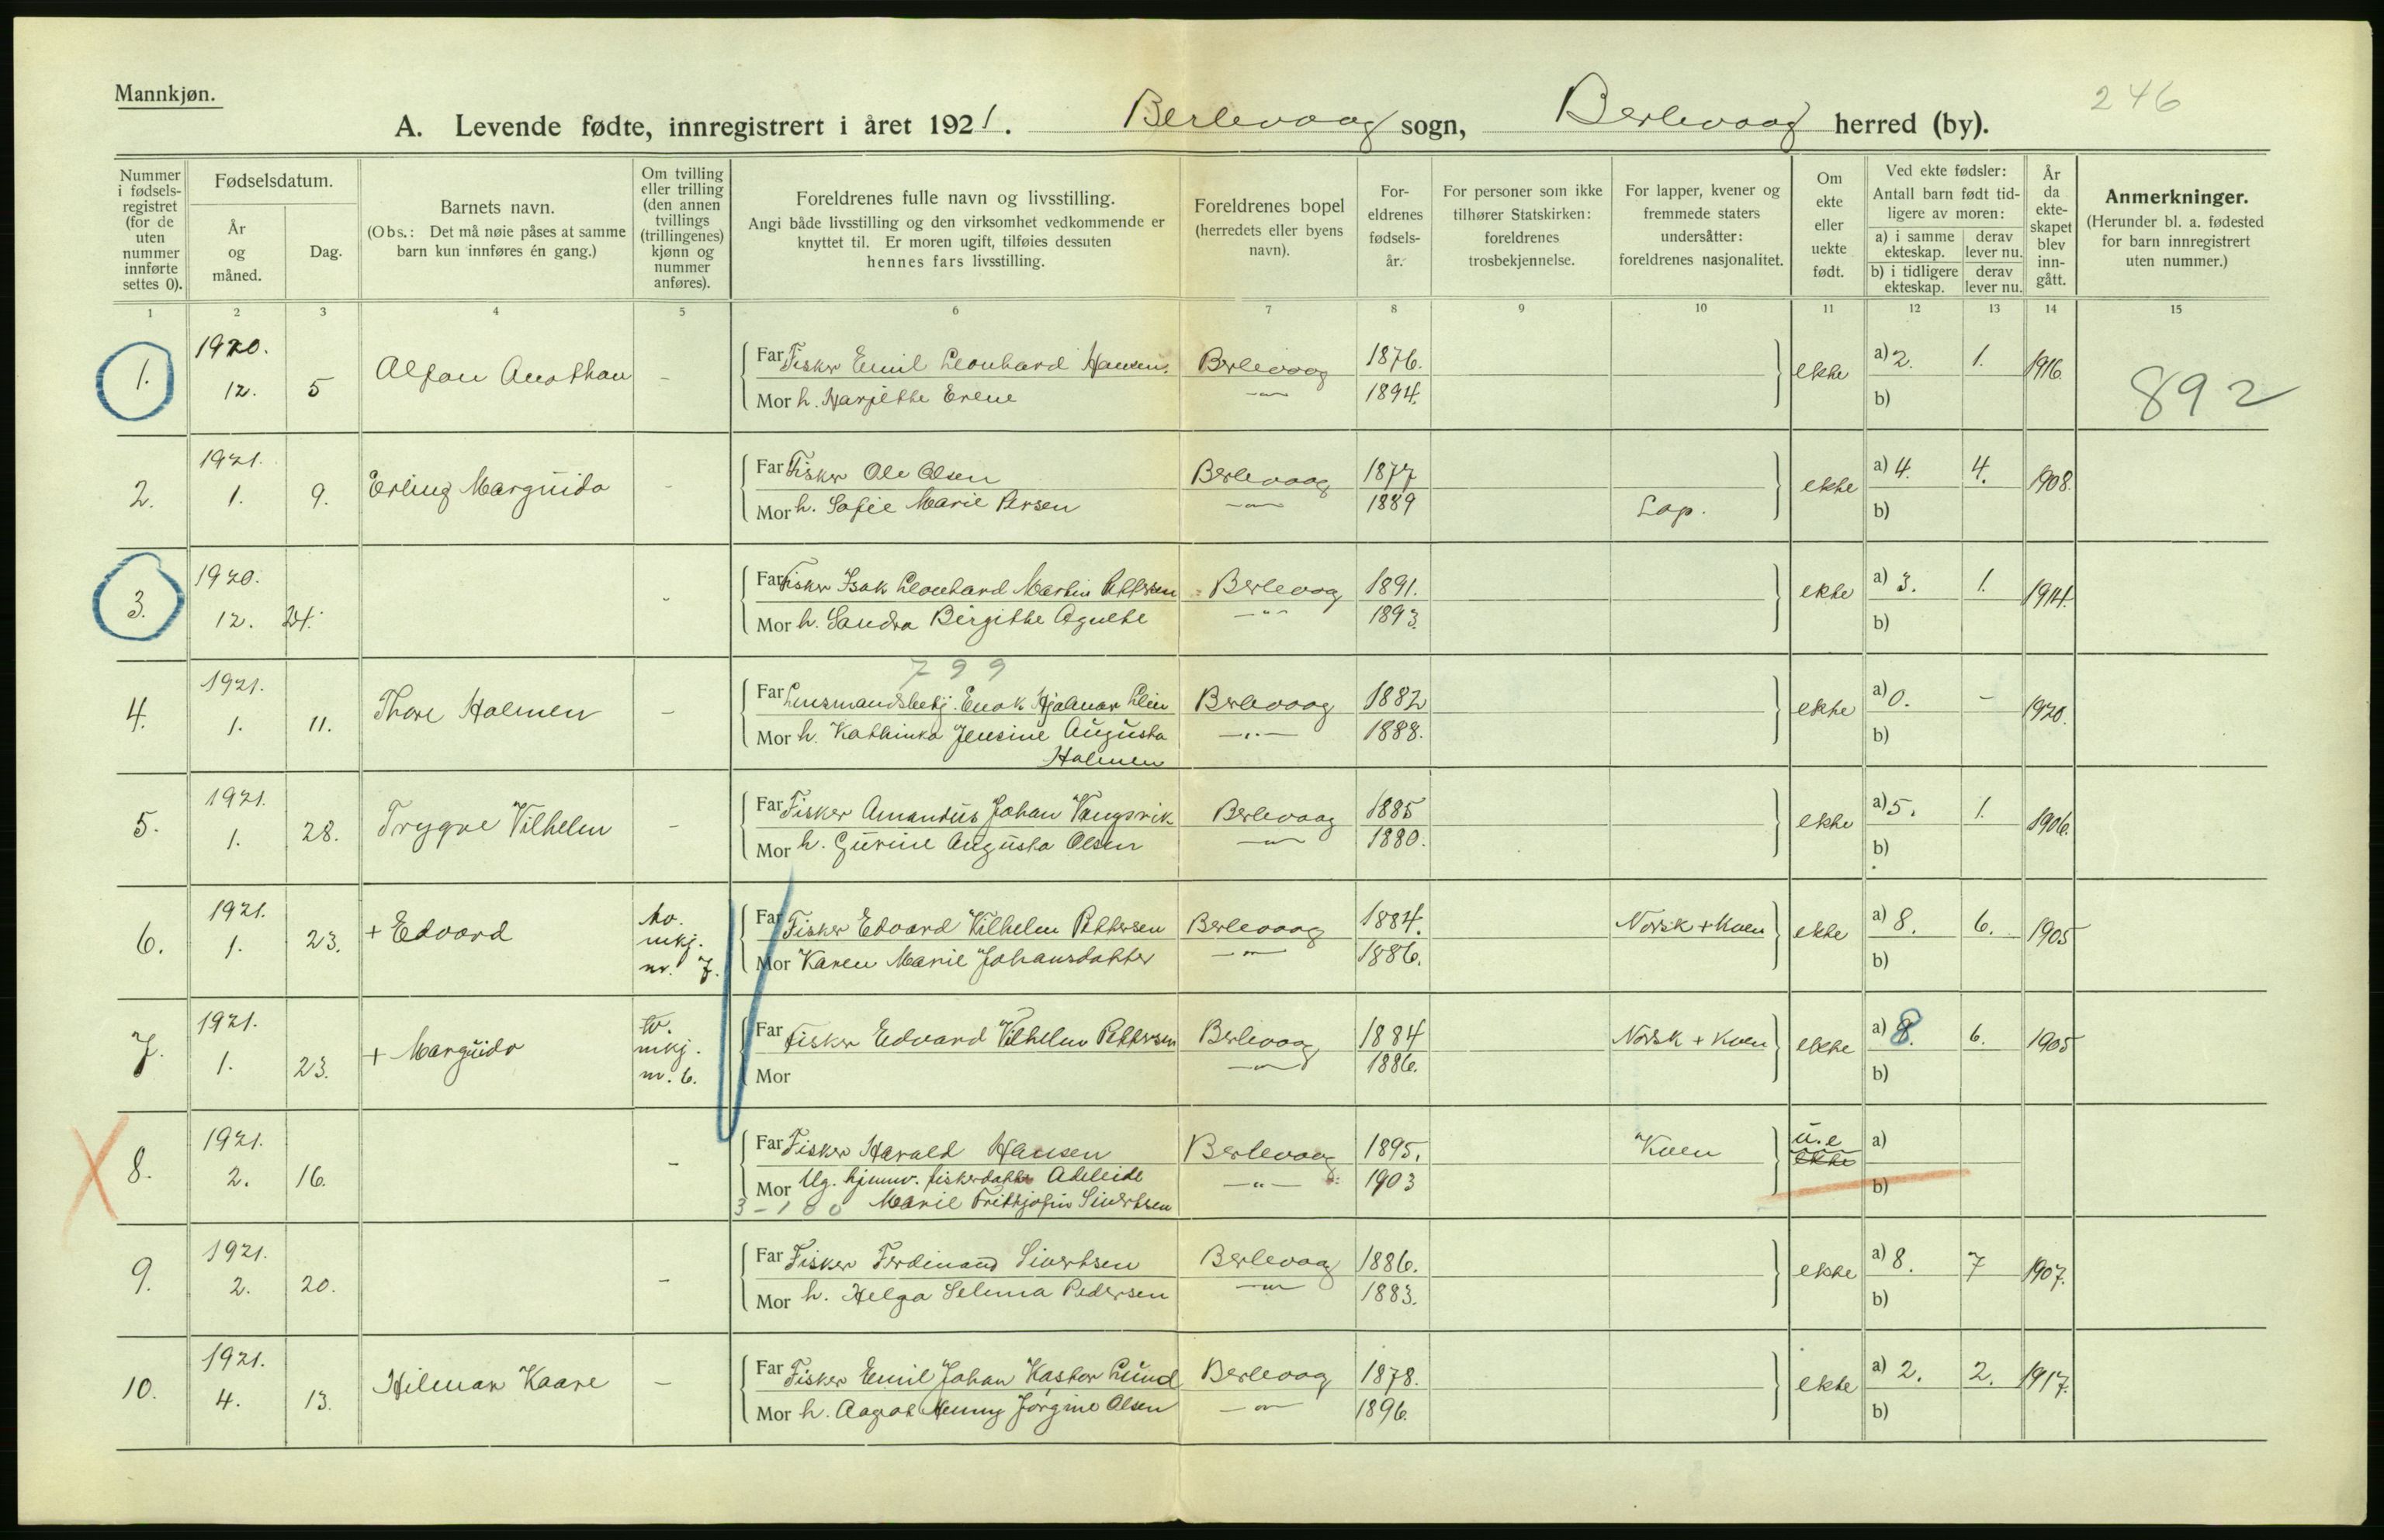 Mannkjøn.
246
A. Levende fødte, innregistrert i året 1921. Berlevaag sogn, Berlevaag herred (by).
Nummer i fødsels-registret (for de uten nummer innførte settes 0).
Fødselsdatum.
År og måned.
Dag.
Barnets navn.
(Obs.: Det må nøie påses at samme barn kun innføres én gang.)
Om tvilling eller trilling (den annen tvillings (trillingenes) kjønn og nummer anføres).
Foreldrenes fulle navn og livsstilling.
Angi både livsstilling og den virksomhet vedkommende er knyttet til. Er moren ugift, tilføies dessuten hennes fars livsstilling.
Foreldrenes bopel (herredets eller byens navn).
For-eldrenes fødsels-år.
For personer som ikke tilhører Statskirken: foreldrenes trosbekjennelse.
For lapper, kvener og fremmede staters undersåtter: foreldrenes nasjonalitet.
Om ekte eller uekte født.
Ved ekte fødsler: Antall barn født tid-ligere av moren:
a) i samme ekteskap. derav lever nu.
b) i tidligere ekteskap. derav lever nu.
År da ekte-skapet blev inn-gått.
Anmerkninger.
(Herunder bl. a. fødested for barn innregistrert uten nummer.)
1 2 3 4 5 6 7 8 9 10 11 12 13 14 15
1. 1920. 12. 5 - Far Fisker Emil Leonhard Hansen. Berlevaag 1876. ekte a) 2. 1. 1916.
Mor h. Erene -"- 1894. b)
892
2. 1921. 1. 9. Erling Marguido - Far Fisker Ole Olsen Berlevaag 1877 ekte a) 4. 4. 1908.
Mor h. Sofie Marie Persen -"- 1889 Lap. b)
3. 1920. 12. 24. - Far Fisker Isak Leonhard Martin Pettersen Berlevaag 1891. ekte a) 3. 1. 1914.
Mor h. Sandra Birgithe Agnethe -"- 1893. b)
799
4. 1921. 1. 11. Thore Holmen - Far Enok Hjalmar Berlevaag 1882 ekte a) 0. - 1920.
Mor h. Kathinka Jensine Augusta Holmen -"- 1888. b)
5. 1921. 1. 28. Trygve Vilhelm - Far Fisker Amandus Johan Vangsvik Berlevaag 1885 ekte a) 5. 1. 1906.
Mor h. Gurine Augusta Olsen -"- 1880. b)
6. 1921. 1. 23. + Edvard tv. mkj. nr. 7. Far Fisker Edvard Vilhelm Pettersen Berlevaag 1884. Norsk + Kven ekte a) 8. 6. 1905
Mor Karen Marie Johansdatter -"- 1886. b)
7. 1921. 1. 23. + Marguido tv. mkj. nr. 6. Far Fisker Edvard Vilhelm Pettersen Berlevaag 1884 Norsk + Kven ekte a) 8. 6. 1905
Mor -"- 1886. b)
8. 1921. 2. 16. - Far Fisker Harald Hansen Berlevaag 1895. Kven u.e ekte a)
Mor Ug. hjemmv. fiskerdatter Adeleide -"- 1903 b)
3-100 Marie Frithjofin Sivertsen
9. 1921. 2. 20. - Far Fisker Ferdinand Sivertsen Berlevaag 1886. ekte a) 8. 7 1907.
Mor h. Helga Selma Pedersen -"- 1883. b)
10. 1921. 4. 13. Hilmar Kaare - Far Fisker Emil Johan Kastor Lund Berlevaag 1878. ekte a) 2. 2. 1917.
Mor h. Aagot Henny Jørgine Olsen -"- 1896. b)